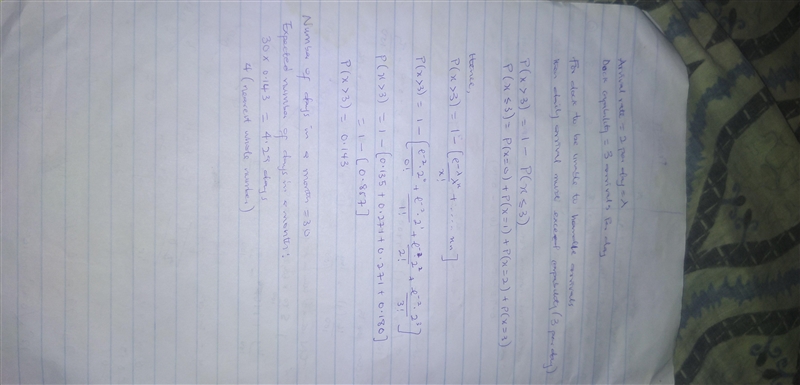 Arrival rate = 2 per day = λ
Dock capability = 3 arrivals per day
For dock to be unable to handle arrivals
daily arrival must exceed capability (3 per day)
P(x>3) = 1 - P(x≤3)
P(x≤3) = P(x=0) + P(x=1) + P(x=2) + P(x=3)
Hence,
P(x>3) = 1 - [e^-λ λ^x / x! + ....]
P(x>3) = 1 - [e^-2 · 2^0 / 0! + e^-2 · 2^1 / 1! + e^-2 · 2^2 / 2! + e^-2 · 2^3 / 3!]
P(x>3) = 1 - [0.135 + 0.271 + 0.271 + 0.180]
= 1 - [0.857]
P(x>3) = 0.143
Number of days in a month = 30
Expected number of days in a month;
30 x 0.143 = 4.29 days
4 (nearest whole number)